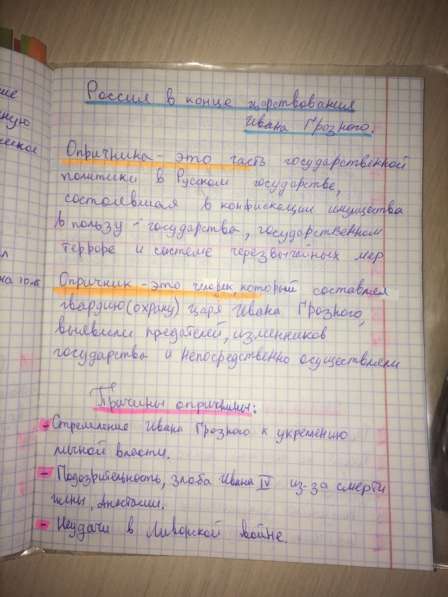 Россия в конце царствования
Ивана Грозного.
Опричнина - это часть государственной
политики в Русском государстве,
состоявшая в конфискации имущества
в пользу государства, государственном
терроре и системе черезвычайных мер
Опричник - это человек, который составлял
гвардию (охрану) царя Ивана Грозного,
выявляли предателей, изменников
государства и непосредственно осуществляли
Причины опричнины:
- Стремление Ивана Грозного к укреплению
личной власти.
- Подозрительность, злоба Ивана IV из-за смерти
жены, Анастасии.
- Неудачи в Ливонской войне.